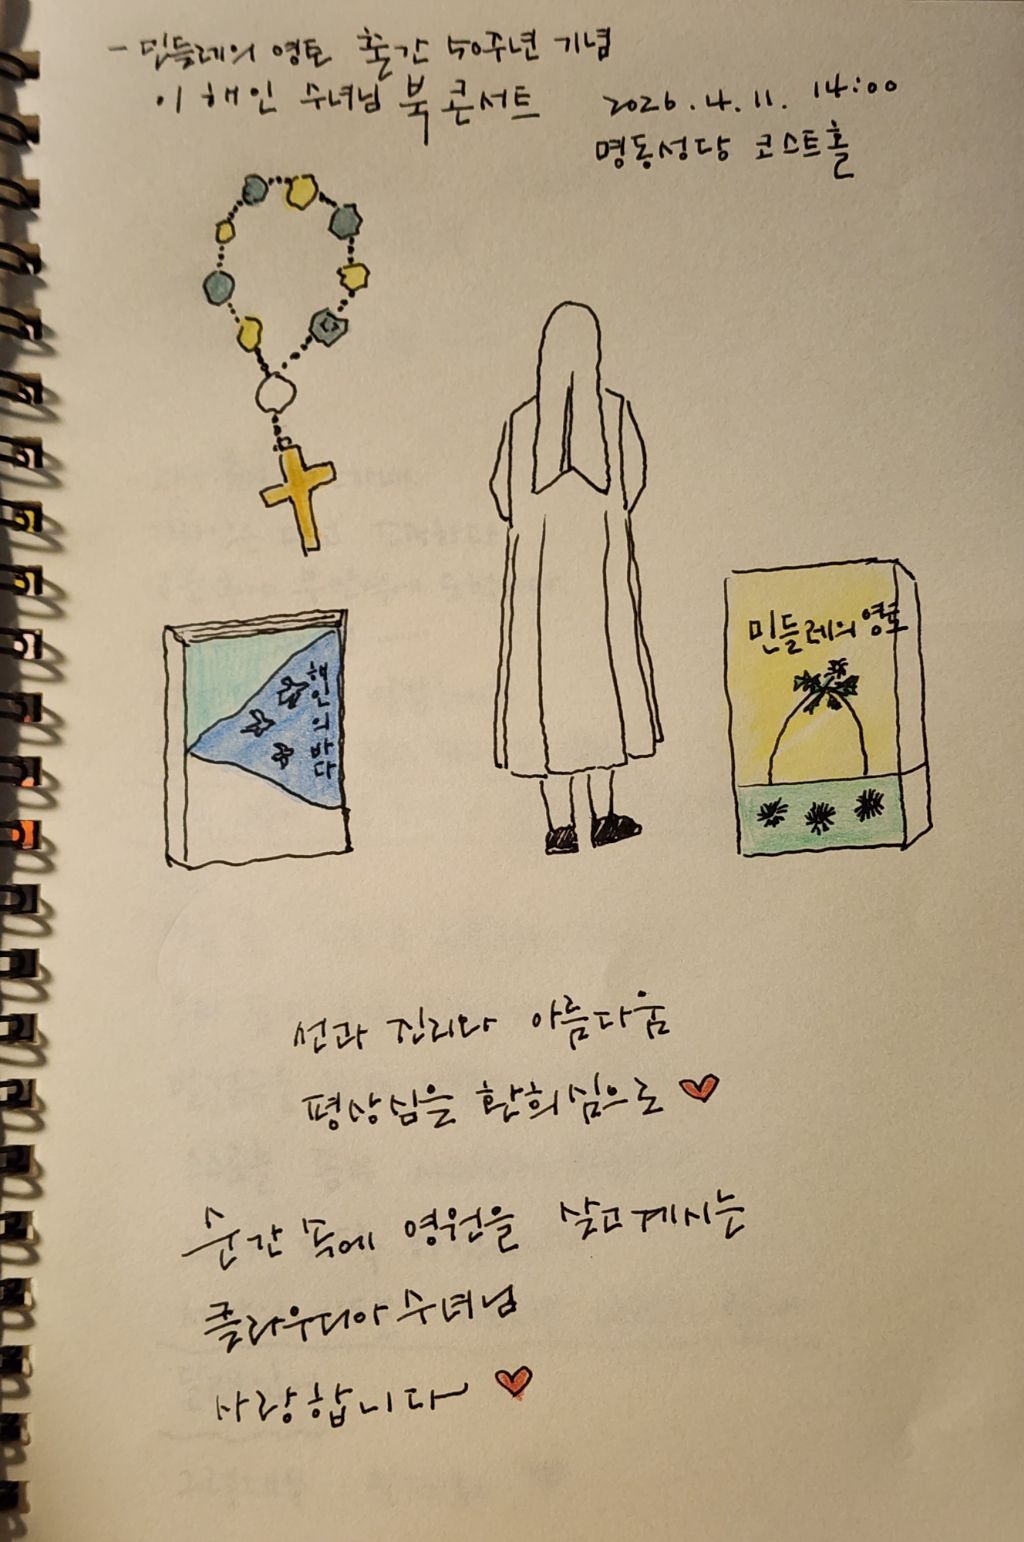 - 민들레의 영토 출간 50주년 기념
이해인 수녀님 북콘서트
2026.4.11. 14:00
명동성당 코스트홀
해인의 바다
민들레의 영토
선과 진리와 아름다움
평상심을 환희심으로 ♥
순간 속에 영원을 살고계시는
클라우디아 수녀님
사랑합니다~ ♥